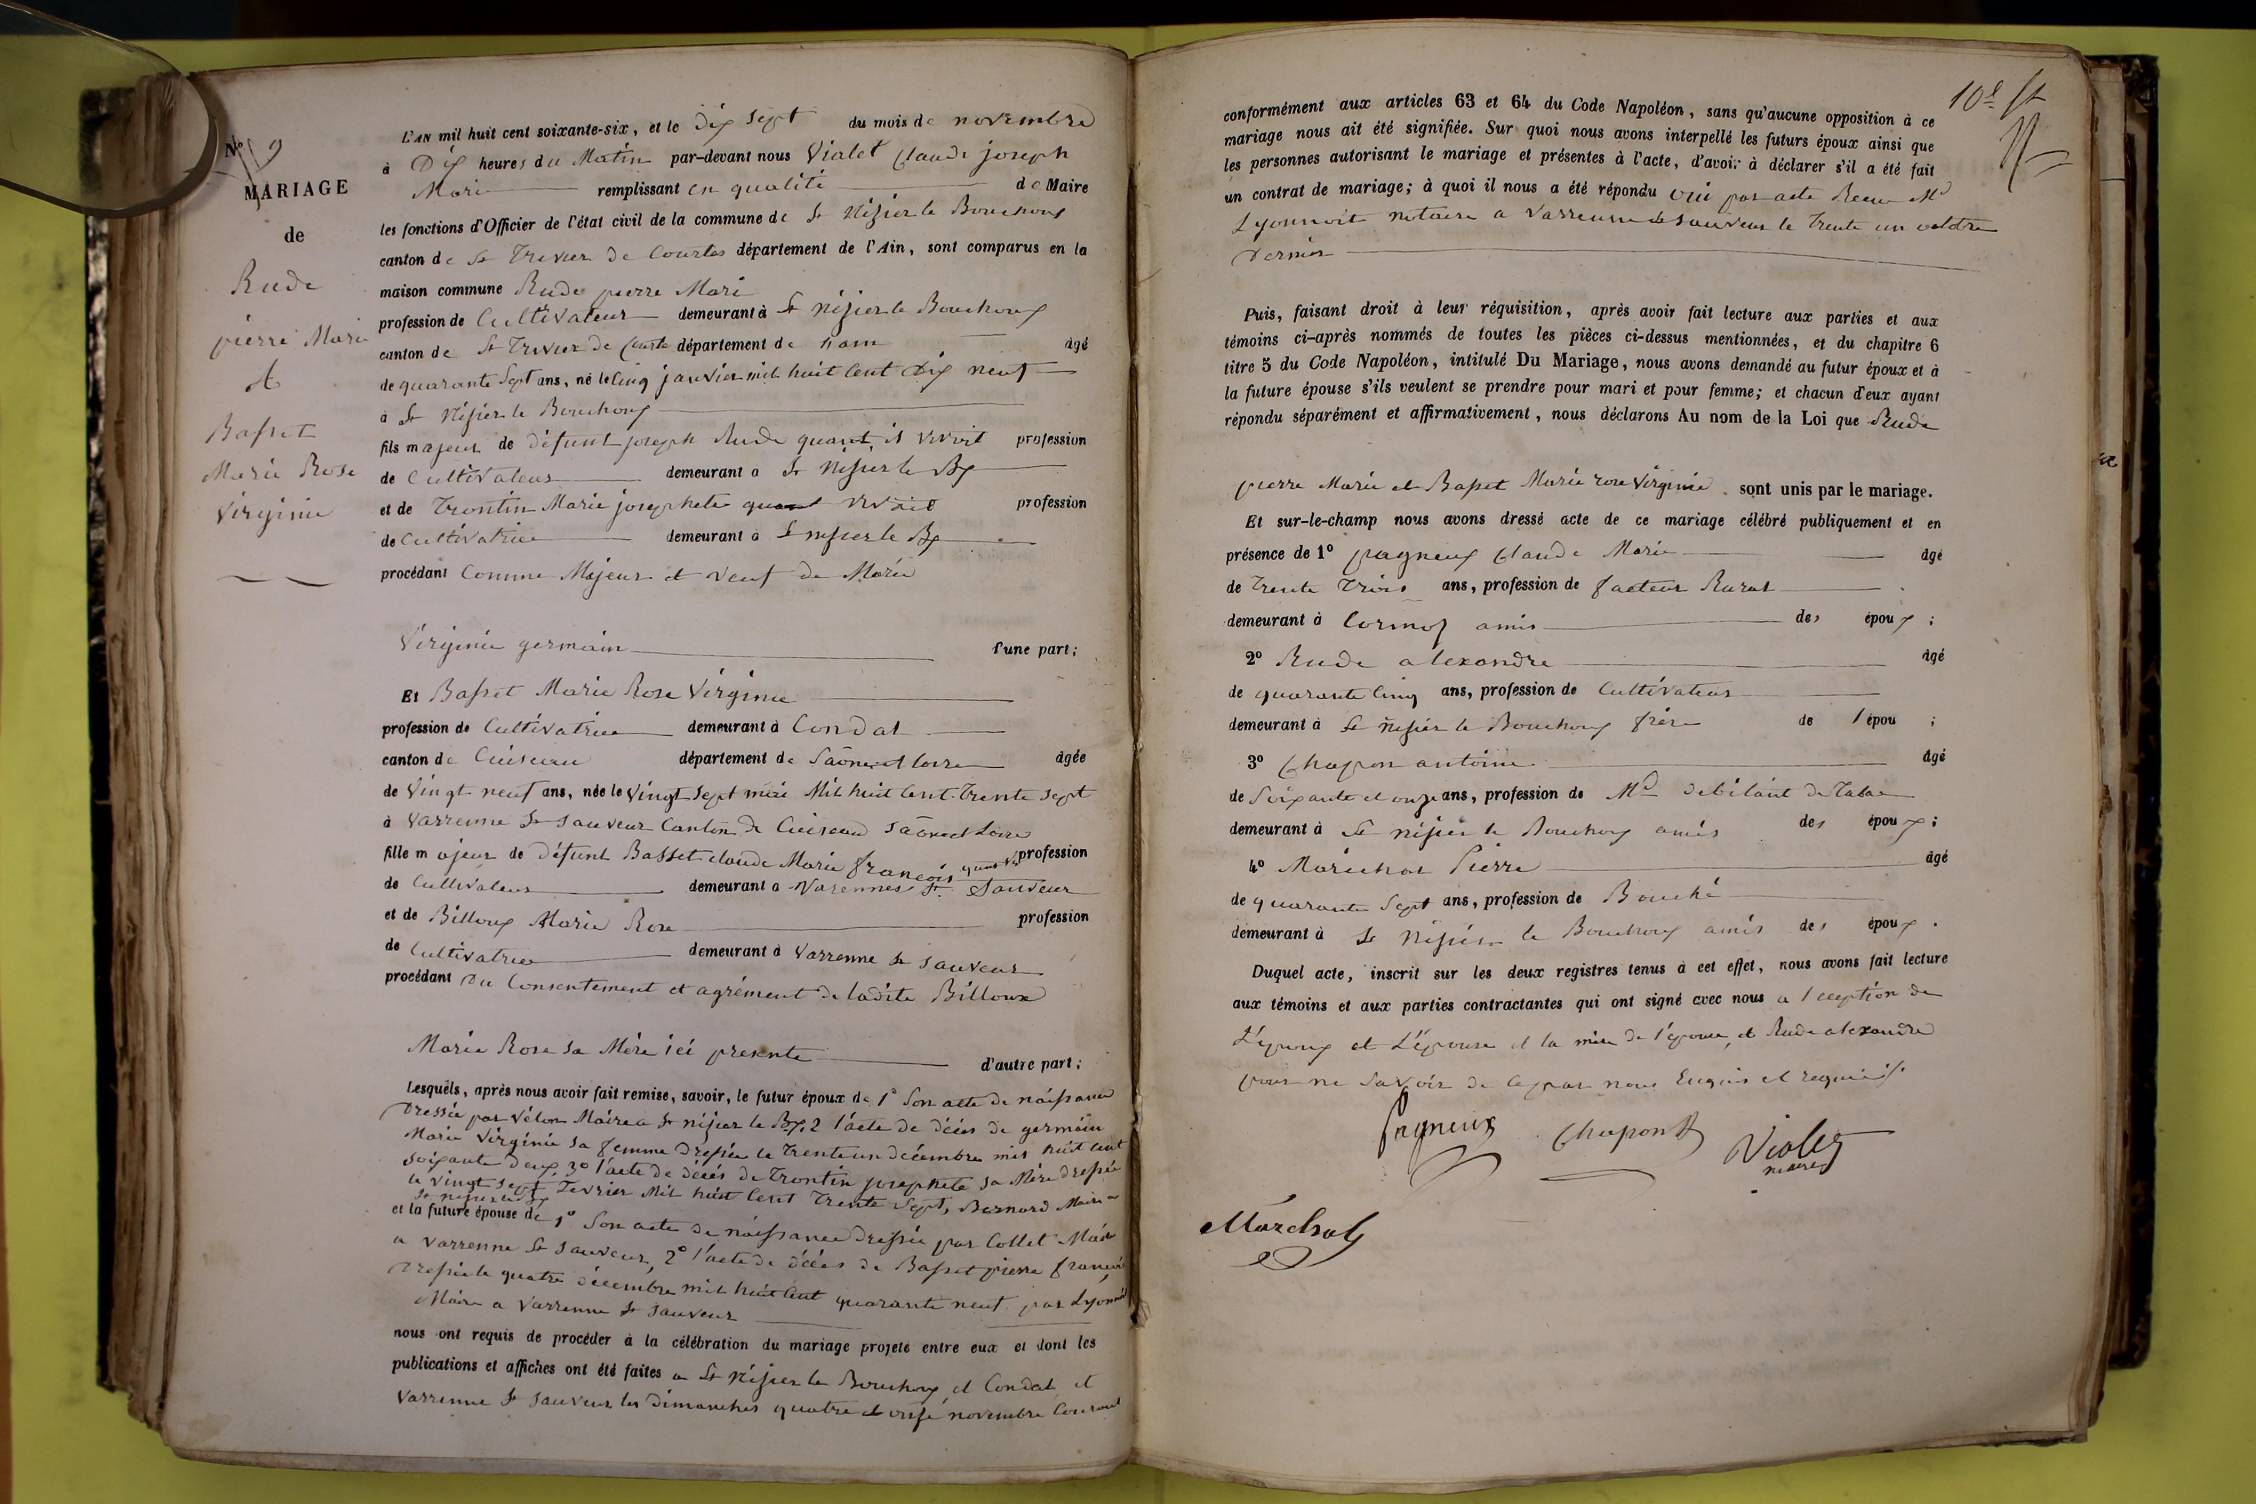 No 9
MARIAGE
de
Rude
pierre Marie
et
Basset
Marie Rose
Virginie
L'AN mil huit cent soixante-six, et le dix sept du mois de novembre
à Dix heures du Matin par-devant nous Violet Claude joseph
Marie remplissant en qualité de Maire
les fonctions d'Officier de l'état civil de la commune de St Nizier le Bouchoux
canton de St Trivier de Courtes département de l'Ain, sont comparus en la
maison commune Rude pierre Mari
profession de Cultivateur demeurant à St Nizier le Bouchoux
canton de St Trivier de Courte département de âgé
de quarante Sept ans, né le Cinq janvier mil huit Cent Dix neuf
à St Nizier le Bouchoux
fils majeur de défunt joseph Rude quant il vivoit profession
de Cultivateur demeurant a St Nizier le Bx
et de Trontin Marie josephete quant vivoit profession
de Cultivatrice demeurant à St nisier le Bx
procédant Comme Majeur et veuf de Marie
Virginie germain d'une part;
Et Basset Marie Rose Virginie
profession de Cultivatrice demeurant à Condal
canton de Cuiseau département de Saône et loire âgée
de Vingt neuf ans, née le Vingt Sept mai Mil huit Cent Trente Sept
à Varrenne St Sauveur Canton de Cuiseau Saône et Loire
fille majeur de Défunt Basset claude Marie françois quant vi profession
de Cultivateur demeurant a Varennes St. Sauveur
et de Billoux Marie Rose profession
de Cultivatrice demeurant à Varrenne St Sauveur
procédant Du Consentement et agrément de ladite Billoux
Marie Rose sa Mère ici presente d'autre part;
Lesquels, après nous avoir fait remise, savoir, le futur époux de 1° Son acte de naissance
Dressée par Vélon Maire a St nizier le Bx. 2 l'acte de décés de germain
Marie Virginie sa femme dressée le Trente un décembre mil huit cent
soixante deux, 3° l'acte de décés de Trontin josephete sa Mère dressée
le vingt Sept fevrier Mil huit Cent Trente Sept, Bernard Maire a
St nizier le Bx
et la future épouse de 1° Son acte de naissance dressée par Collet Maire
a Varrenne St Sauveur, 2° l'acte de décés de Basset pierre françois
Dressée le quatre décembre mil huit Cent quarante neuf par Lyonnait
Maire a Varrenne St Sauveur
nous ont requis de procéder à la célébration du mariage projeté entre eux et dont les
publications et affiches ont été faites a St Nizier le Bouchoux et Condal et
Varrenne St Sauveur les Dimanches quatre et onze novembre Courant
conformément aux articles 63 et 64 du Code Napoléon, sans qu'aucune opposition à ce
mariage nous ait été signifiée. Sur quoi nous avons interpellé les futurs époux ainsi que
les personnes autorisant le mariage et présentes à l'acte, d'avoir à déclarer s'il a été fait
un contrat de mariage; à quoi il nous a été répondu oui par acte Recu Me
Lyonnoit notaire a Varrenne St Sauveur le Trente un octobre
Dernier
Puis, faisant droit à leur réquisition, après avoir fait lecture aux parties et aux
témoins ci-après nommés de toutes les pièces ci-dessus mentionnées, et du chapitre 6
titre 5 du Code Napoléon, intitulé Du Mariage, nous avons demandé au futur époux et à
la future épouse s'ils veulent se prendre pour mari et pour femme; et chacun d'eux ayant
répondu séparément et affirmativement, nous déclarons Au nom de la Loi que Rude
pierre Marie et Basset Marie rose Virginie sont unis par le mariage.
Et sur-le-champ nous avons dressé acte de ce mariage célébré publiquement et en
présence de 1° pagneux Claude Marie âgé
de Trente Trois ans, profession de facteur Rural
demeurant à Cormoz amis des époux;
2° Rude alexandre âgé
de quarante Cinq ans, profession de Cultivateur
demeurant à St nizier le Bouchoux frère de l'épou;
3° Chapon antoine âgé
de Soixante et onze ans, profession de Md debitant de Tabac
demeurant à St nizier le Bouchoux amis des époux;
4° Maréchal Pierre âgé
de quarante Sept ans, profession de Bouché
demeurant à St Nizier le Bouchoux amis des époux.
Duquel acte, inscrit sur les deux registres tenus à cet effet, nous avons fait lecture
aux témoins et aux parties contractantes qui ont signé avec nous a l'ception de
L'époux et L'épouse et la mère de l'épouse, et Rude alexandre
pour ne savoir de ce par nous Enquis et requis
Pagneux Chapon Violet
maire
Marchal